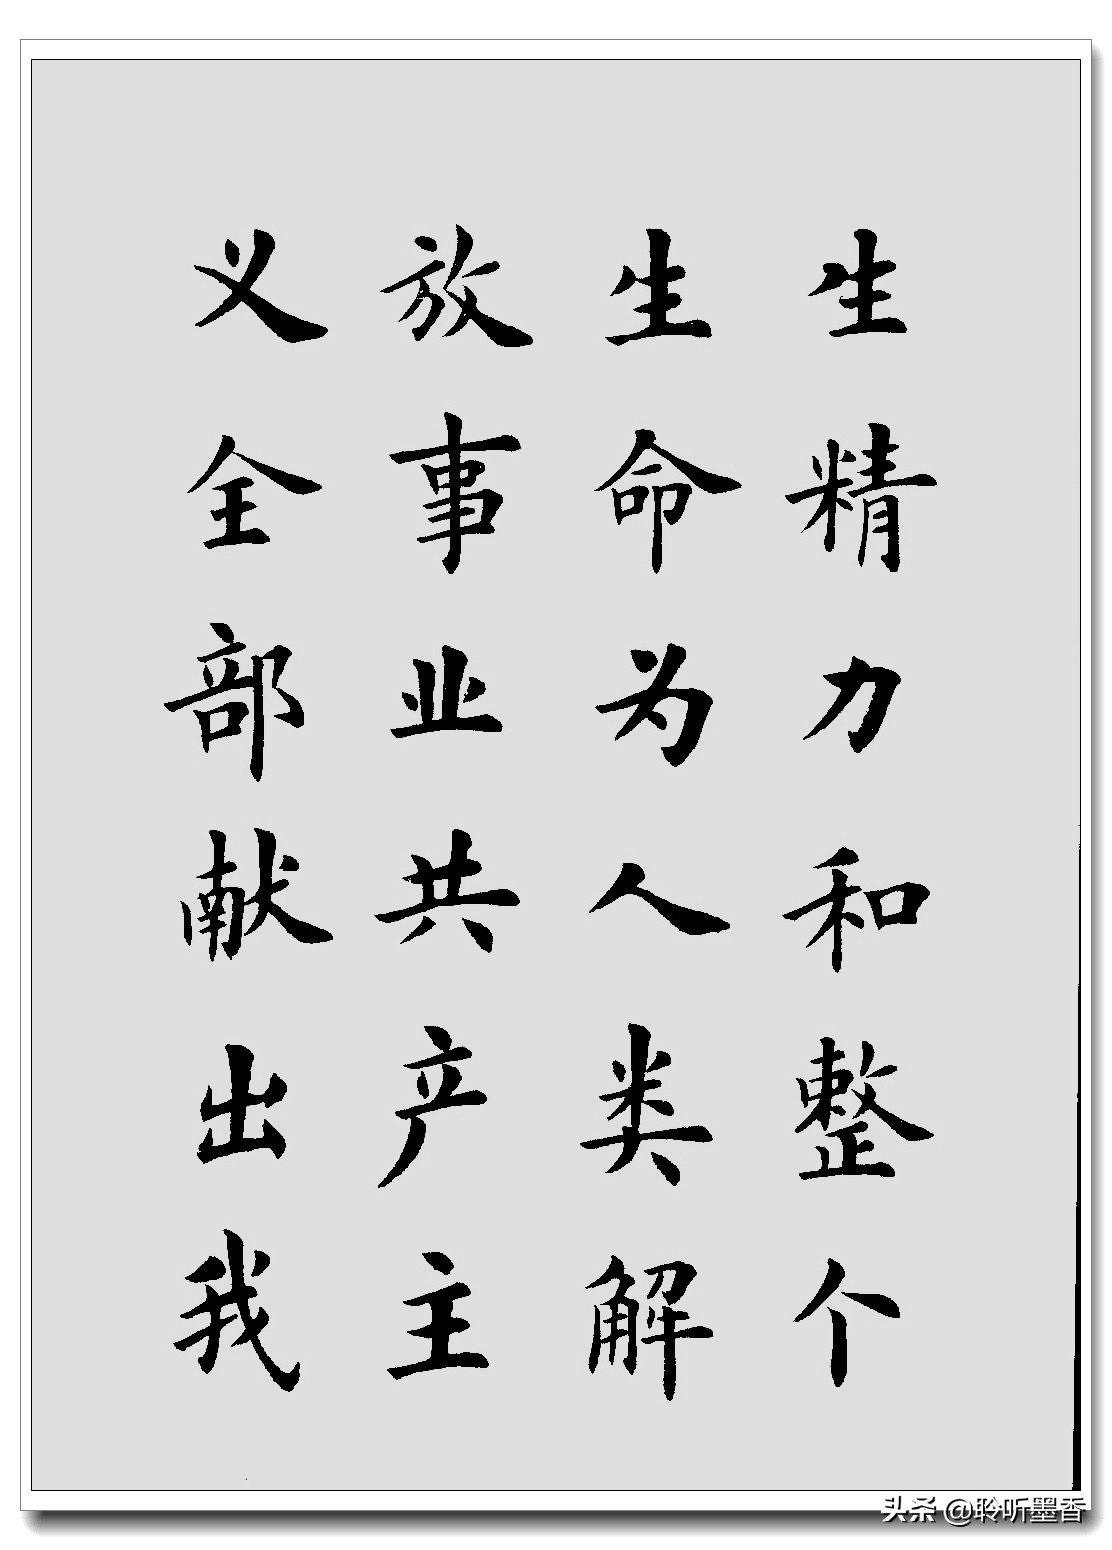 生精力和整个
生命为人类解
放事业共产主
义全部献出我
头条 @聆听墨香